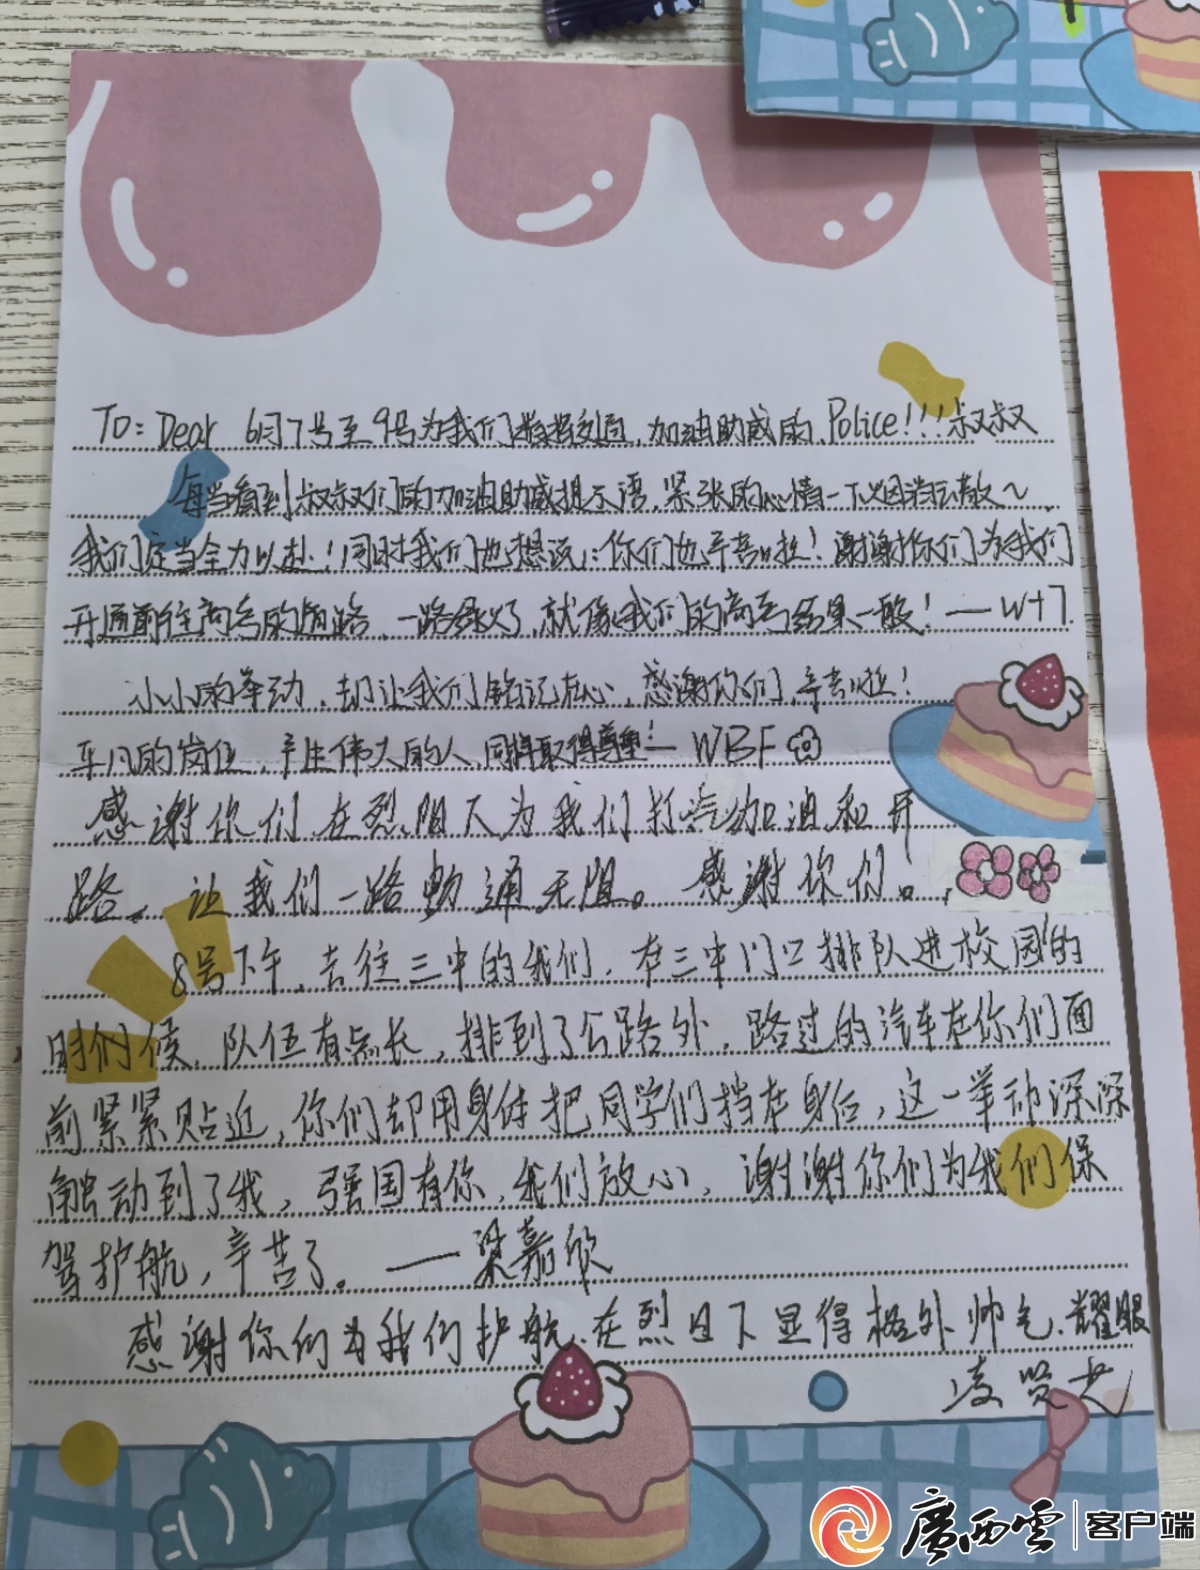 To: Dear 6月7号至9号为我们指挥交通,加油助威的 Police!!!叔叔
每当看到叔叔们的加油助威提示语,紧张的心情一下烟消云散~
我们定当全力以赴!同时我们也想说:你们也辛苦啦!谢谢你们为我们
开通前往高考的道路,一路绿灯,就像我们的高考结果一般!—WH7.
小小的举动,却让我们铭记在心,感谢你们,辛苦啦!
平凡的岗位,伟大的人,同样取得尊重!—WBF
感谢你们在烈阳下为我们打气加油和开
路,让我们一路畅通无阻。感谢你们。
8号下午,去往三中的我们,在三中门口排队进校园的
时们候,队伍有点长,排到了公路外,路过的汽车在你们面
前紧紧贴近,你们却用身体把同学们挡在身后,这一举动深深
触动到了我,强国有你,我们放心,谢谢你们为我们保
驾护航,辛苦了。——梁嘉欣
感谢你们为我们护航,在烈日下显得格外帅气,耀眼
凌贤
廣西雲|客户端